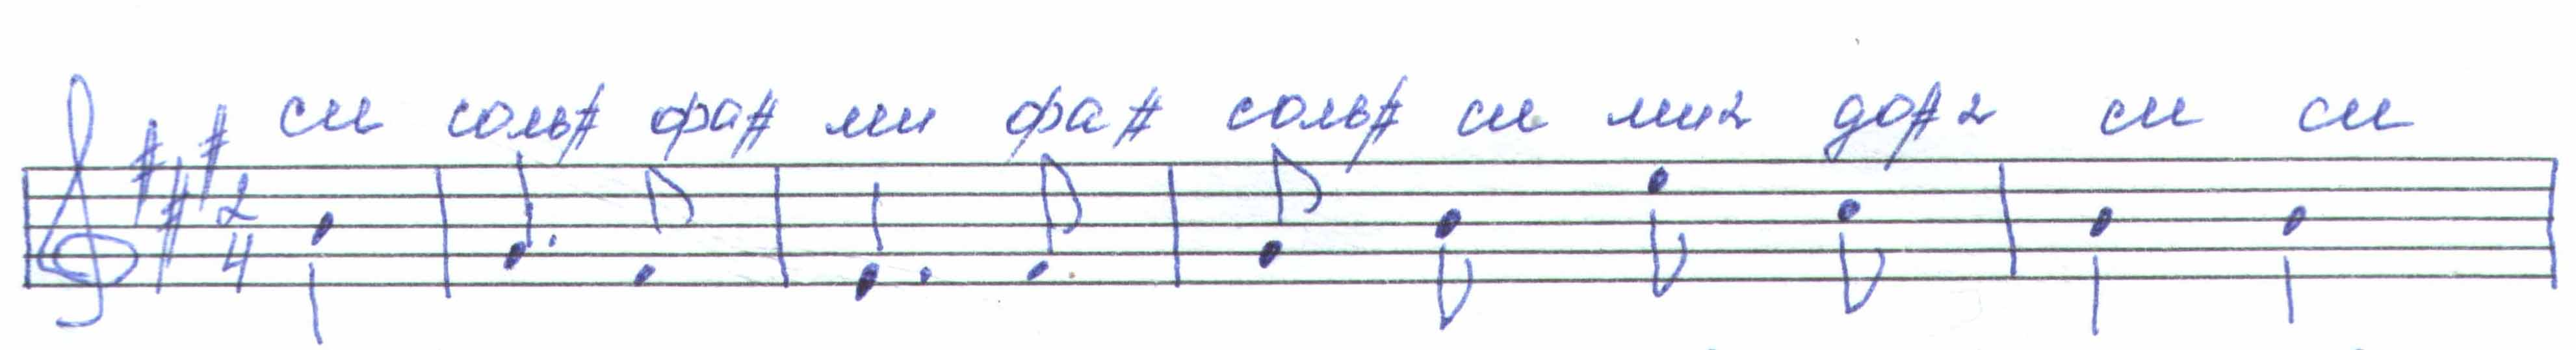 си соль# фа# ми фа# соль# си ми2 до#2 си си
2
4